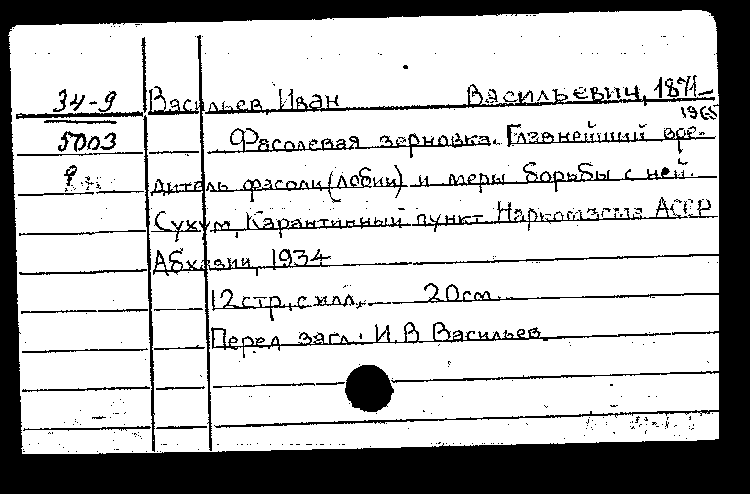 34-9 Васильев, Иван Васильевич, 1871-
1965
5003 Фасолевая зерновка. Главнейший вре-
дитель фасоли (лобии) и меры борьбы с ней.
Сухум, Карантинный пункт Наркомзема АССР
Абхазии, 1934
12 стр, с илл. 20 см.
Перед загл.: И. В Васильев.